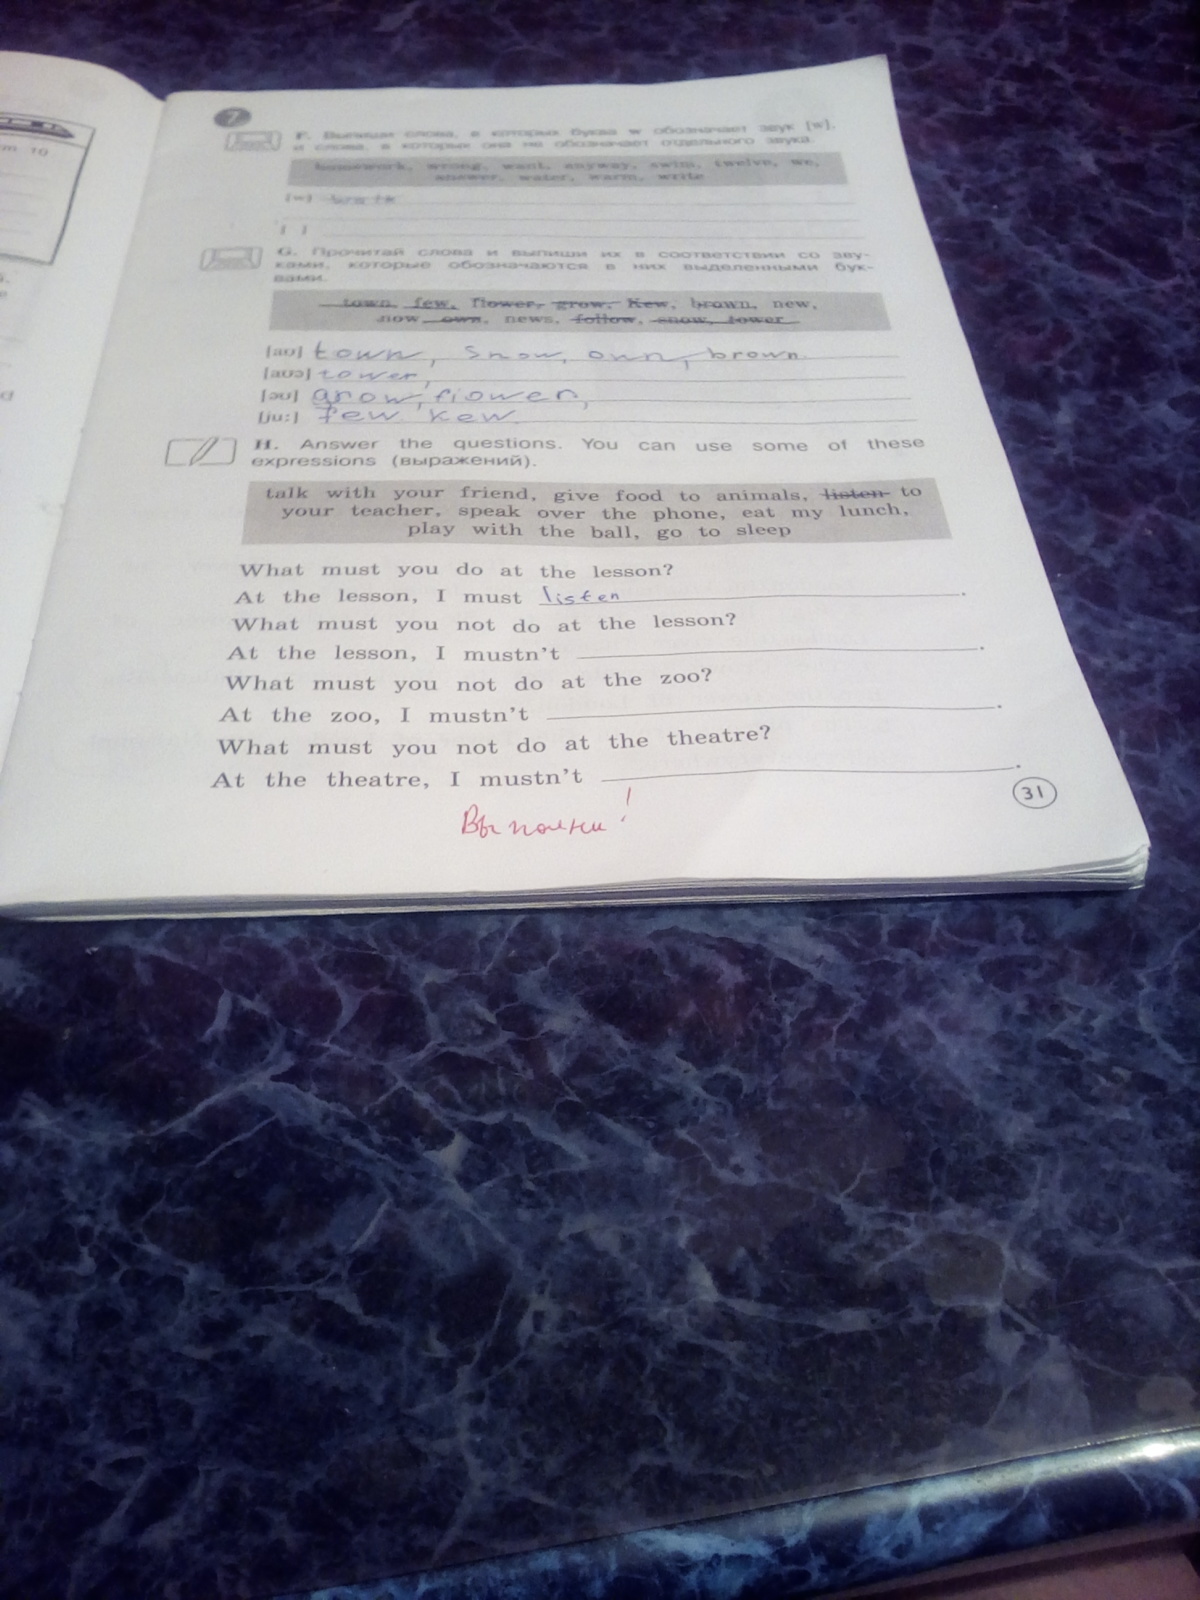 7
т 10
F. Выпиши слова, в которых буква w обозначает звук [w],
и слова, в которых она не обозначает отдельного звука.
homework, wrong, want, anyway, swim, twelve, we,
answer, water, warm, write
[w]
[ ]
G. Прочитай слова и выпиши их в соответствии со зву-
ками, которые обозначаются в них выделенными бук-
вами.
town, few, flower, grow, Kew, brown, new,
now, own, news, follow, snow, tower
[aʊ] town, snow, own, brown
[aʊə] tower,
[əʊ] grow, flower,
[ju:] few kew
H. Answer the questions. You can use some of these
expressions (выражений).
talk with your friend, give food to animals, listen to
your teacher, speak over the phone, eat my lunch,
play with the ball, go to sleep
What must you do at the lesson?
At the lesson, I must listen .
What must you not do at the lesson?
At the lesson, I mustn't .
What must you not do at the zoo?
At the zoo, I mustn't .
What must you not do at the theatre?
At the theatre, I mustn't .
31
Выполни!